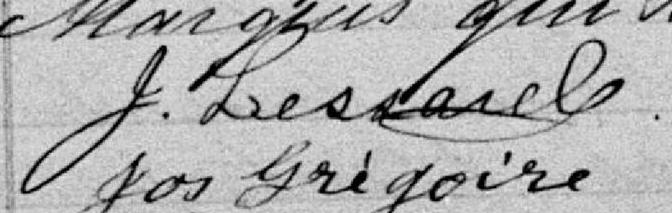 Marquis qui
J. Lessard.
Jos Grégoire